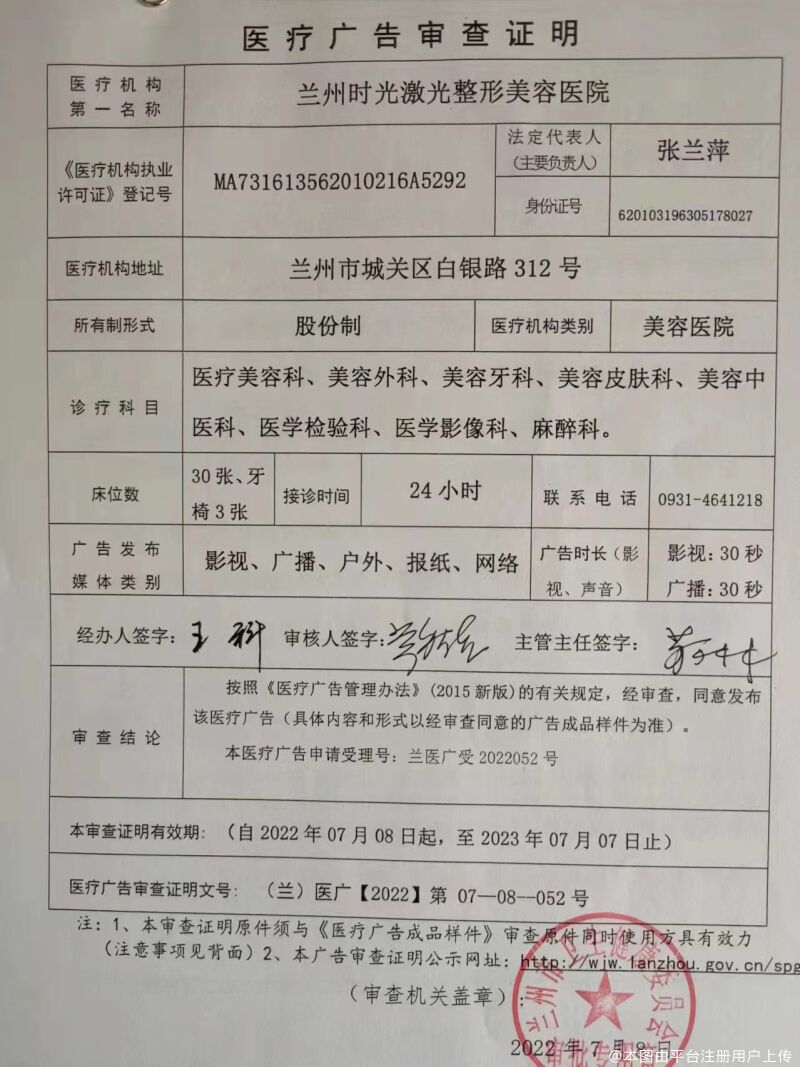 医疗广告审查证明
医疗机构
第一名称
兰州时光激光整形美容医院
《医疗机构执业
许可证》登记号
MA731613562010216A5292
法定代表人
(主要负责人)
张兰萍
身份证号
620103196305178027
医疗机构地址
兰州市城关区白银路312号
所有制形式
股份制
医疗机构类别
美容医院
诊疗科目
医疗美容科、美容外科、美容牙科、美容皮肤科、美容中
医科、医学检验科、医学影像科、麻醉科。
床位数
30张、牙
椅3张
接诊时间
24小时
联系电话
0931-4641218
广告发布
媒体类别
影视、广播、户外、报纸、网络
广告时长(影
视、声音)
影视:30秒
广播:30秒
经办人签字:王科 审核人签字: 主管主任签字:
审查结论
按照《医疗广告管理办法》(2015新版)的有关规定，经审查，同意发布
该医疗广告（具体内容和形式以经审查同意的广告成品样件为准）。
本医疗广告申请受理号：兰医广受2022052号
本审查证明有效期：（自2022年07月08日起，至2023年07月07日止）
医疗广告审查证明文号：（兰）医广【2022】第 07—08—052号
注：1、本审查证明原件须与《医疗广告成品样件》审查原件同时使用方具有效力
（注意事项见背面）2、本广告审查证明公示网址：http://wjw.lanzhou.gov.cn/spg
（审查机关盖章）：
兰州市卫生健康委员会
审批专用章
2022年7月8日
@本图由平台注册用户上传